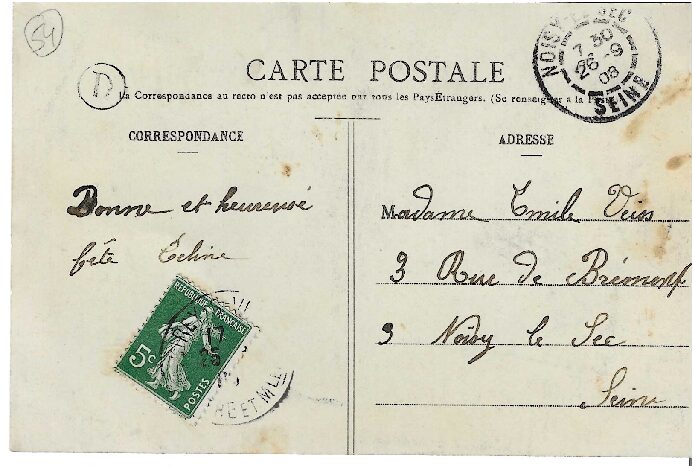 54
NOISY-LE-SEC
7 30
26 -9
08
SEINE
D
CARTE POSTALE
La Correspondance au recto n'est pas acceptée par tous les Pays Etrangers. (Se renseigner à la
CORRESPONDANCE
ADRESSE
Bonne et heureuse
fête Céline
Madame Emile Veiss
9 Rue de Brémont
9 Noisy le Sec
Seine
REPUBLIQUE FRANÇAISE
5c
POSTES
25
ET MLE